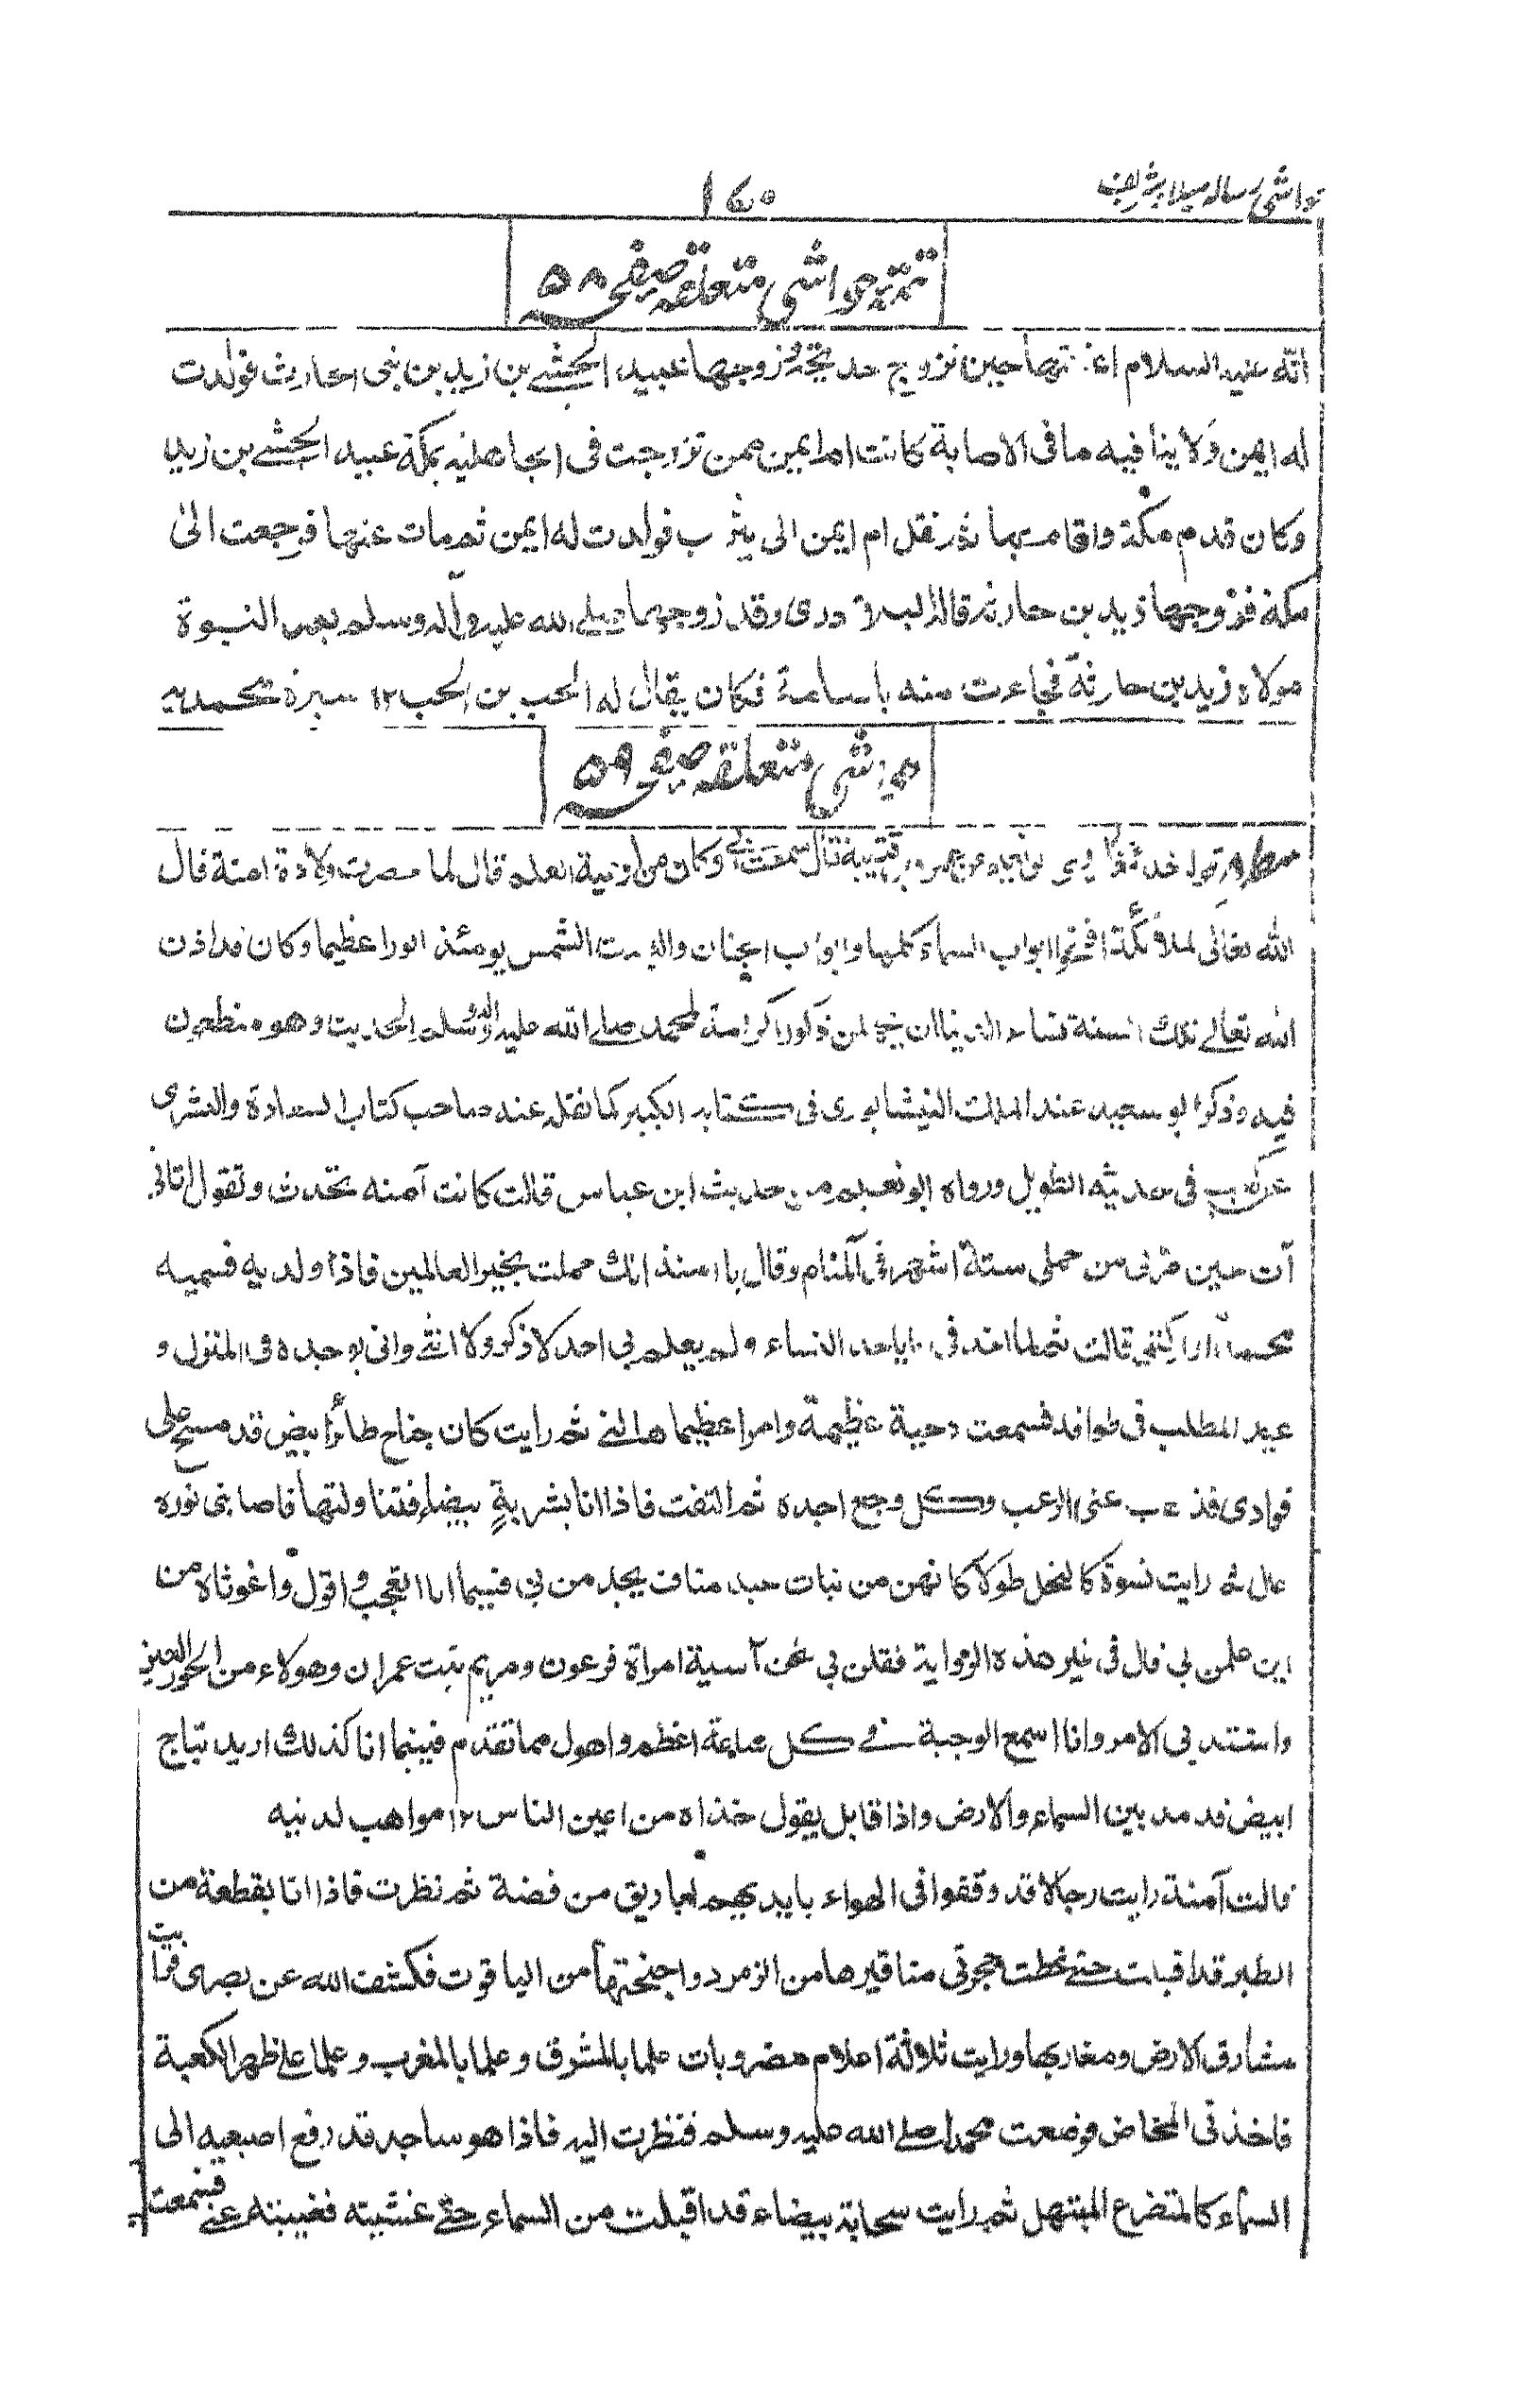 حواشی رسالہ میلاد شریف
۱۷۰
تتمۃ حواشی متعلقہ صفحہ ۵۸
انه عليه السلام اعتقها حين تزوج خديجة وزوجها عبيد الحبشے بن زيد بن بنى الحارث فولدت
له ايمن ولا ينافيه ما فى الاصابة كانت ام ايمن ممن تزوجت فى الجاهلية بمكة عبيد الحبشے بن زيد
وكان قدم مكة واقام بها ثم نقل ام ايمن الى يثرب فولدت له ايمن ثم مات عنها فرجعت الىٰ
مكة فزوجها زيد بن حارثة قاله البلاذری وقد زوجها صلے الله عليه وآله وسلم بعد النبوة
مولاه زيد بن حارثة فجاءت منه باسامة فكان يقال له الحب بن الحب ۱۲ سيرة محمديه
حواشی متعلقہ صفحہ ۵۹
سطر قوله عمرو بن قتيبة قال سمعت ابی وكان من اوعية العلم قال لما حضرت ولادة امنة قال
الله تعالى لملائكة افتحوا ابواب السماء كلها وابواب الجنان والبست الشمس يومئذ نورا عظيما وكان قد اذن
الله تعالے تلك السنة لنساء الدنيا ان يحملن ذكورا كرامة لمحمد صلے الله عليه وآله وسلم الحديث وهو مطعون
فيه وذكر ابو سعيد عبد الملك النيشابوری فى كتابه الكبير كما نقله عنه صاحب كتاب السعادة والبشرى
عن كعب فى حديثه الطويل ورواه ابو نعيم من حديث ابن عباس قالت كانت آمنه تحدث وتقول اتانى
آت حين مر بى من حملى ستة اشهر فى المنام وقال يا امنة انك حملت بخير العالمين فاذا ولدتيه فسميه
محمدا واكتمى قالت ثم لما اخذنى ما ياخذ النساء ولم يعلم بى احد لا ذكر ولا انثے وانى لوحيدة فى المنزل و
عبد المطلب فى طوافه فسمعت وجبة عظيمة وامرا عظيما هالنى ثم رايت كان جناح طائر ابيض قد مسح على
فوادى فذهب عنى الرعب وكل وجع اجده ثم التفت فاذا انا بشربة بيضاء فتناولتها فاصابنى نوره
عال ثم رايت نسوة كالنخل طولا كانهن من بنات عبد مناف يحدقن بى فبينما انا اتعجب واقول واغوثاه من
اين علمن بى قال فى غير هذه الرواية فقلن بى نحن آسية امراة فرعون ومريم بنت عمران وهولاء من الحور العين
واشتد بى الامر وانا اسمع الوجبة فے كل ساعة اعظم واهول مما تقدم فبينما انا كذلك اريد بتباج
ابيض قد مد بين السماء والارض واذا قابل يقول خذاه من اعين الناس ۱۲ مواهب لدنيه
قالت آمنة رايت رجالا قد وقفوا فى الهواء بايديهم اباريق من فضة ثم نظرت فاذا انا بقطعة من
الطير قد اقبلت حتے غطت حجرتى مناقيرها من الزمرد واجنحتها من الياقوت فكشف الله عن بصرى فرايت
مشارق الارض ومغاربها ورايت ثلاثة اعلام مضروبات علما بالمشرق وعلما بالمغرب وعلما علے ظهر الكعبة
فاخذنى المخاض فوضعت محمدا صلے الله عليه وسلم فنظرت اليه فاذا هو ساجد قد رفع اصبعيه الى
السماء كالمتضرع المبتهل ثم رايت سحابة بيضاء قد اقبلت من السماء حتے غشيته فغيبته عنے فسمعت